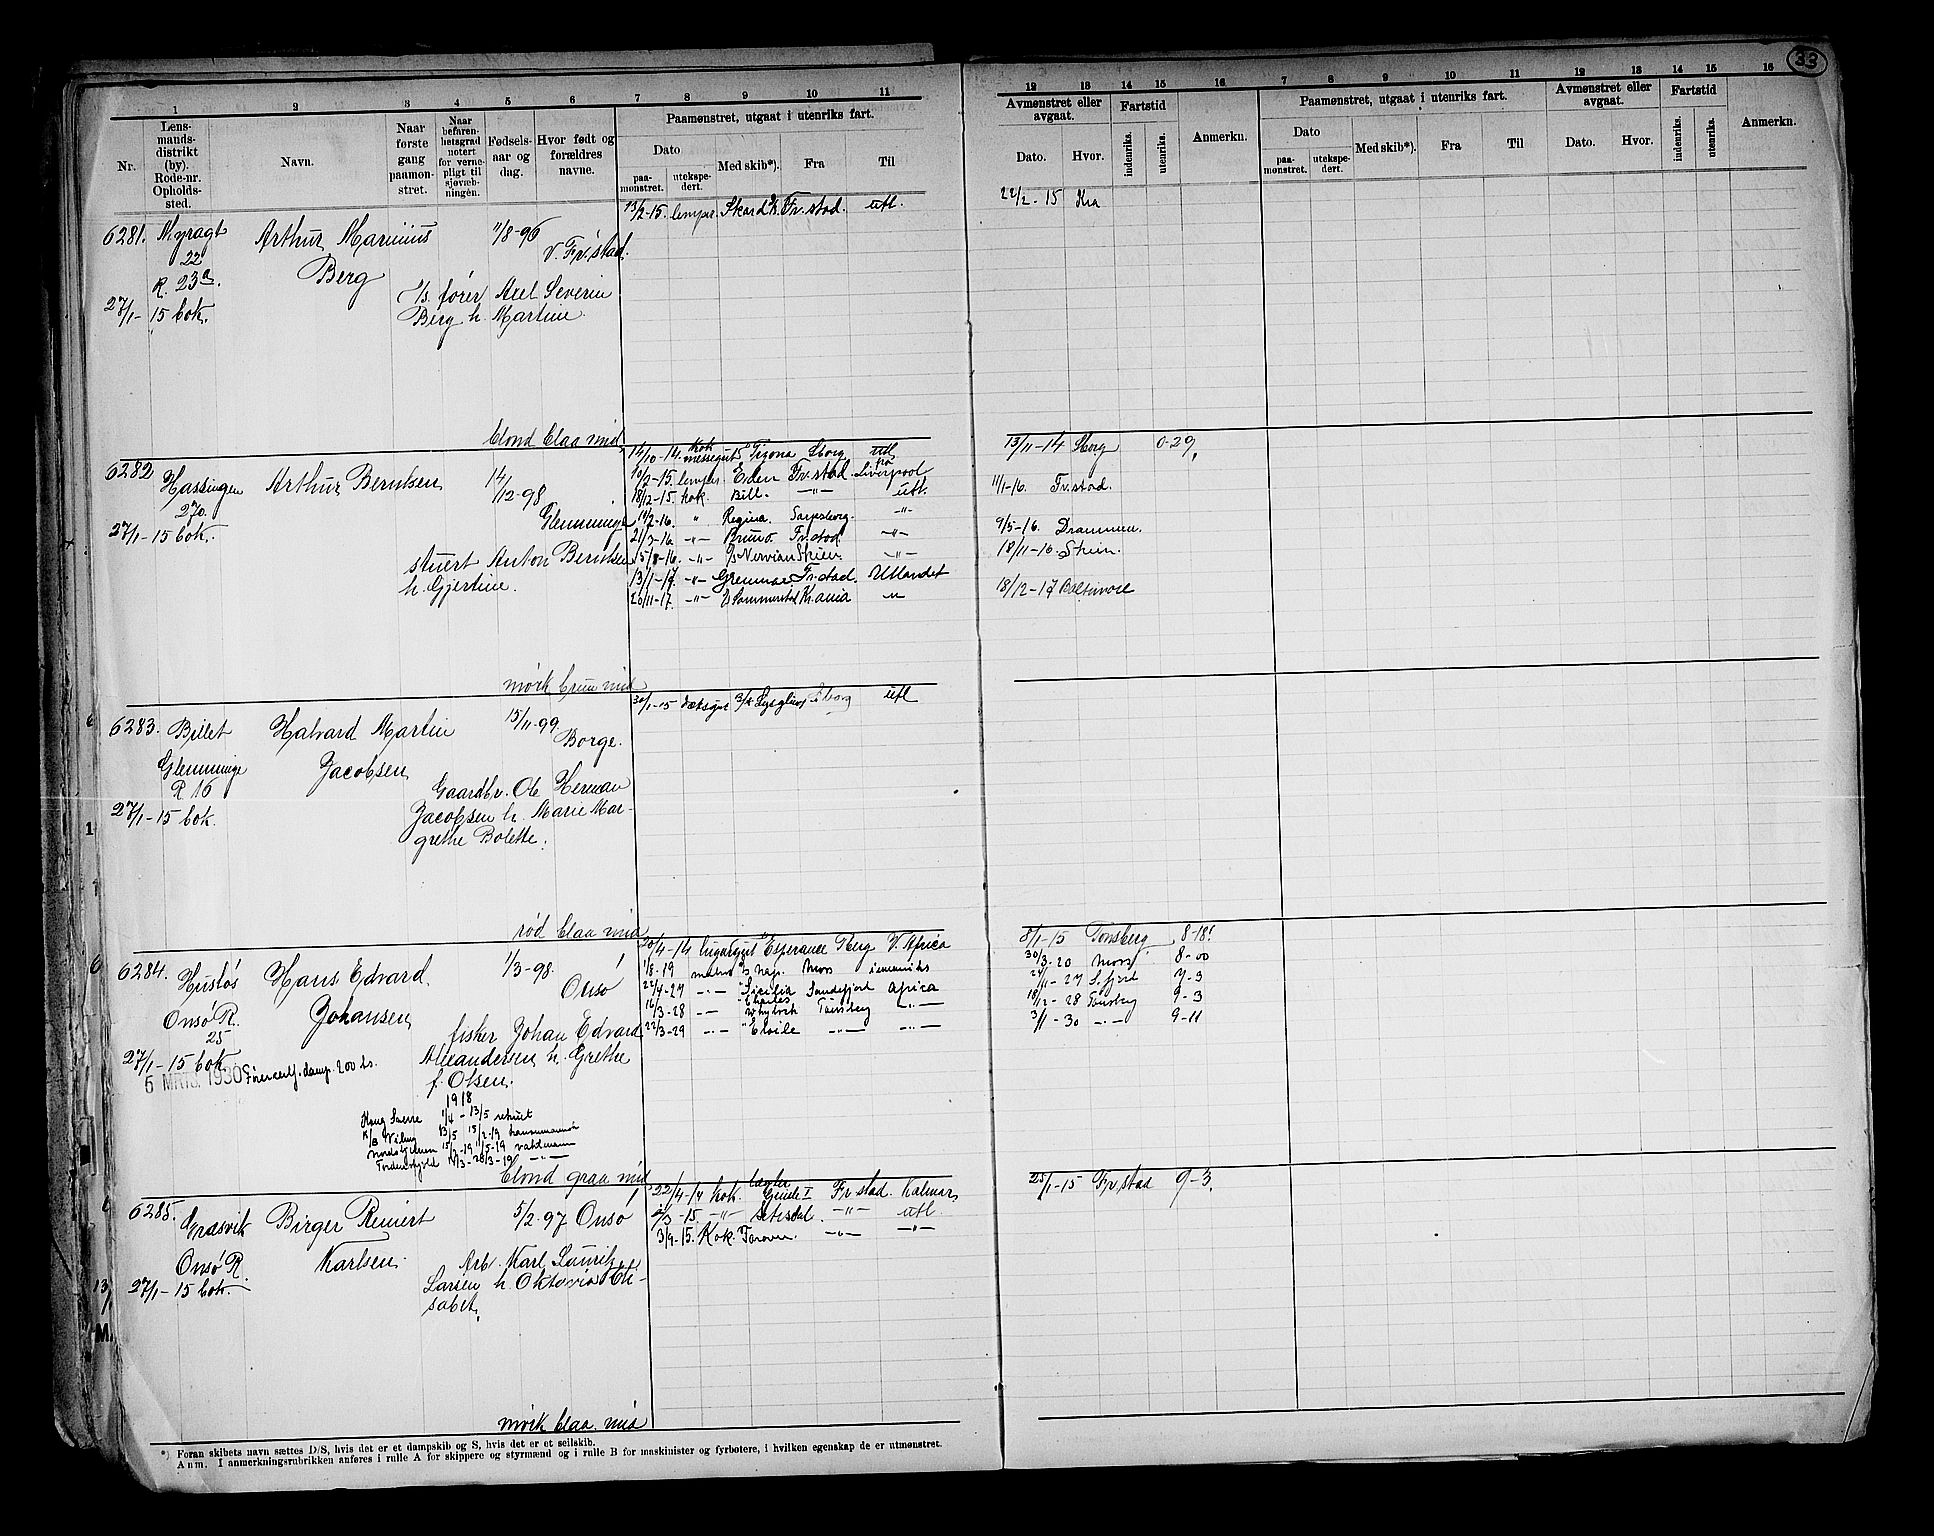 33
1 2 3 4 5 6 7 8 9 10 11 12 13 14 15 16 7 8 9 10 11 12 13 14 15 16
Nr.
Lens-
mands-
distrikt
(by).
Rode-nr.
Opholds-
sted.
Navn.
Naar
første
gang
paamøn-
stret.
Naar
befaren-
hetsgrad
notert
for verne-
pligt til
sjøvæb-
ningen.
Fødsels-
aar og
dag.
Hvor født og
forældres
navne.
Paamønstret, utgaat i utenriks fart.
Dato
paa-
mønstret.
utekspe-
dert.
Med skib*).
Fra
Til
Avmønstret eller
avgaat.
Dato.
Hvor.
Fartstid
indenriks.
utenriks.
Anmerkn.
Paamønstret, utgaat i utenriks fart.
Dato
paa-
mønstret.
utekspe-
dert.
Med skib*).
Fra
Til
Avmønstret eller
avgaat.
Dato.
Hvor.
Fartstid
indenriks.
utenriks.
Anmerkn.
13/2-15. Skard Fr.stad. utl. 22/2-15 Kra
6281. Arthur Marinius 11/8-96
22 V. Fr.stad.
R. 23a. Berg
fører Axel Severin
27/1-15 bok. Berg h. Martine.
blond blaa mid
14/10-14. kok Sborg utl 13/11-14 Sborg 0-29,
6282 Hassingen Arthur Berntsen 14/12-98
270. Glemminge
10/2-15. Eden Fr.stad. Liverpool
18/12-15. kok. Bill. -"- utl. 11/1-16. Fr.stad.
11/2-16. " Regina. Sarpsborg. -"- 9/5-16. Drammen.
27/1-15 bok. 21/3-16. -"- Bruno. Fr.stad -"-
stuert Anton Berntsen 15/8-16. -"- Skien. -"- 18/11-16. Skien.
h. Gjertine. 13/11-17. -"- Grenmar. Fr.stad. Utlandet
20/11-17. -"- Kr.ania -"- 18/12-17 Baltimore
mørk brun mid
30/1-15 Sborg utl
6283. Bjelet Halvard Martin 15/11-99
Borge.
Glemminge Jacobsen
R 16 Gaardbr. Ole Herman
27/1-15 bok. Jacobsen h. Marie Mar-
grethe Bolette.
rød blaa mid
20/4-14 Esperance Tberg V. Africa 8/1-15 Tønsberg 8-18!
6284. Hans Edvard 1/3-98.
Onsø
1/8-19 Moss 30/3-20 Moss 8-00
22/4-27 -"- Sicilia Sandefjord Africa 24/11-27 S.fjord 7-3
Onsø R. Johansen 16/3-28 -"- Charles Tønsberg -"- 18/12-28 Tønsberg 9-3
25 fisker Johan Edvard 22/3-29 -"- -"- -"- 3/11-30 -"- 9-11
27/1-15 bok. Alexandersen h. Grethe
6 MRTS. 1930 damp. 200 ts.
f. Olsen.
1918
1/4-13/5 rekrut
13/5 15/2-19
Tordenskjold 11/3-28/3-19 -"-
blond graa mid
22/4-14 kok. Fr.stad. Kalmar 25/1-15 Fr.stad 9-3.
6285. Græsvik Birger Reinert 5/2-97 Onsø
2/3-15. -"- Setesdal. -"- utl.
3/9-15. Kok. -"- -"-
Onsø R. Karlsen. Arb. Karl Lauritz
27/1-15 bok. Larsen h. Oktavia Eli-
sabet.
mørk blaa mid
*) Foran skibets navn sættes D/S, hvis det er et dampskib og S, hvis det er et seilskib.
Anm. I anmerkningsrubrikken anføres i rulle A for skippere og styrmænd og i rulle B for maskinister og fyrbøtere, i hvilken egenskap de er utmønstret.